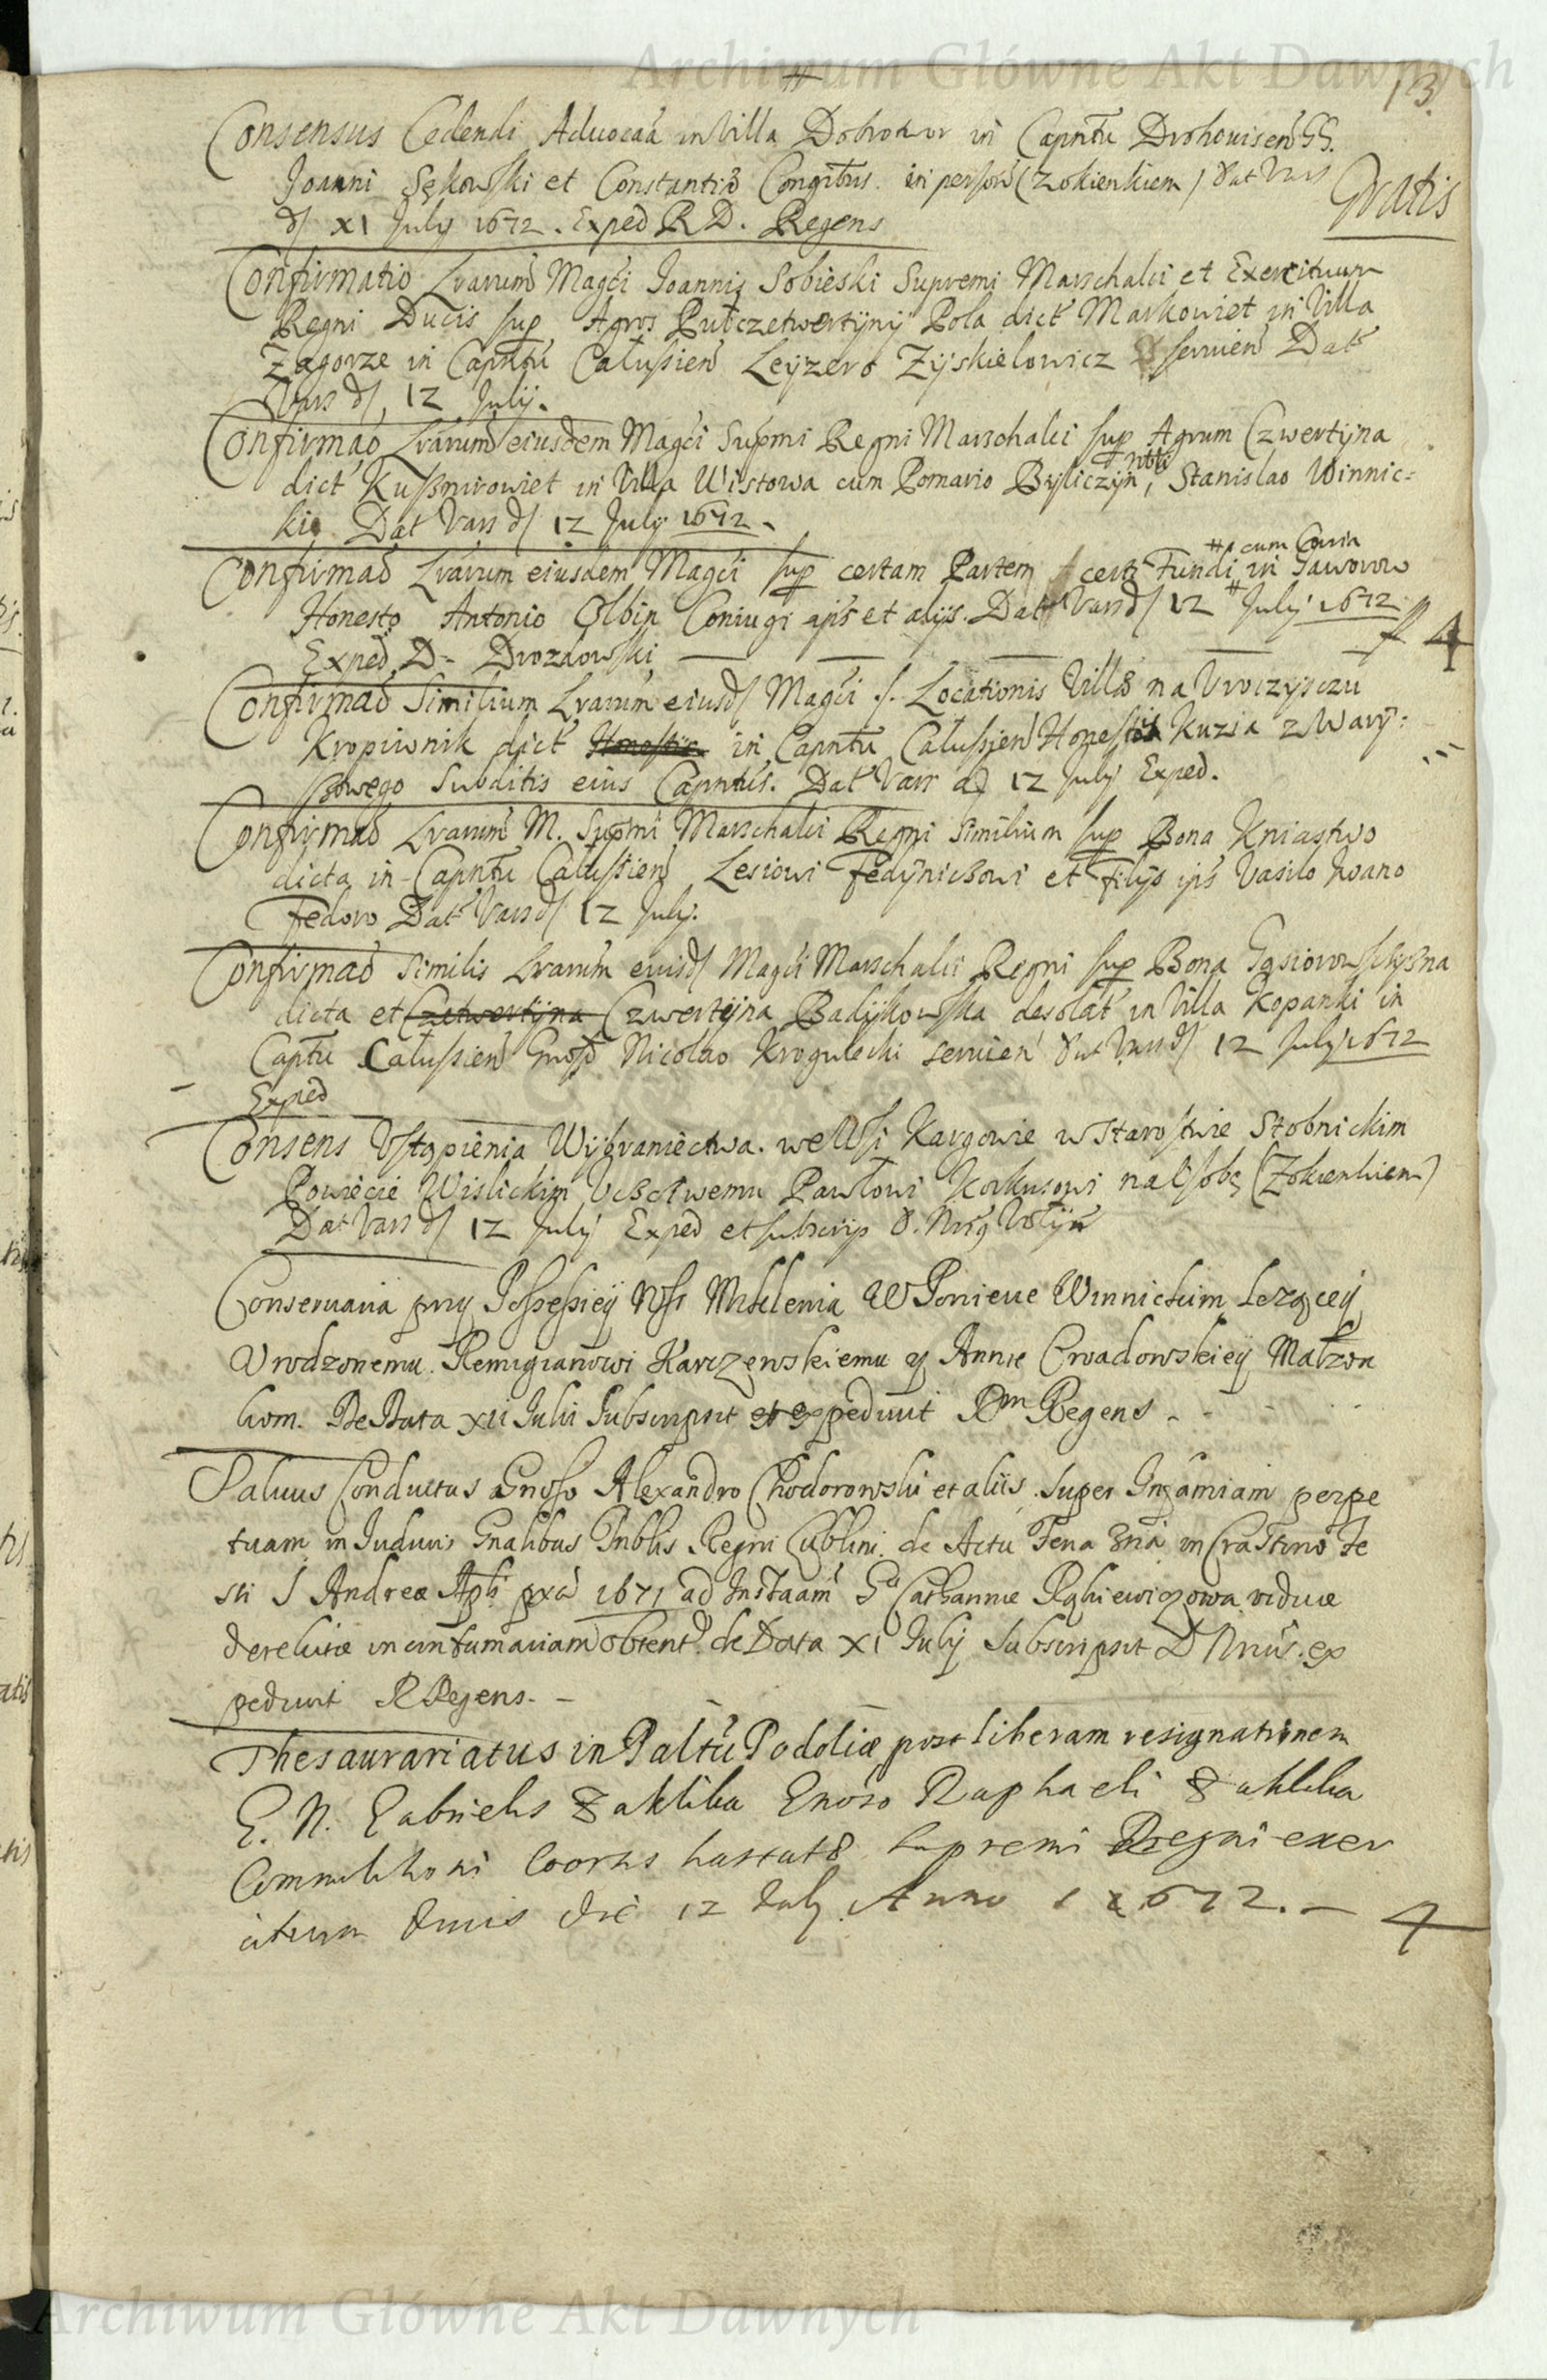 Archiwum Główne Akt Dawnych
#
123
Consensus Cedendi Aduocaã in Villa in Capntũ Drohouisen GG.
Joanni Sękowski et Constantiæ Congibus in person (z okienkiem) Dat Vars
Gratis
d XI July 1672. Exped R D. Regens
Confirmatio Lrarum Magci Joannis Sobieski Supremi Marschalci et Exercituum
Regni Ducis sup Agros Pułczetwertyny Pola dict Markowiet in Villa
Zagorze in Capntũ Całussien Leyzero Zyskielowicz seruien Dat
Vars d, 12 July.
Confirmao Lrarum eiusdem Magci Supmi Regni Marschalci sup Agrum Czwertyna
dict Kuszmirowiet in Villa Wistowa cum Pomario Byliczyn, Nbli Stanislao Winnic=
kio Dat Vars d 12 July 1672.
Confirmao Lrarum eiusdem Magci sup certam Partem certi Fundi # in Jaworow
# cum Curia
Honesto Antonio Olbin Coniugi ips et alys. Dat Vars d 12 July 1672
f 4
Exped D. Drozdowski
Confirmao Similium Lrarum eiusd Magci s. Locationis Villæ na Vroczysczu
Kropiwnik dict Honestis in Capntu Całussien Honestis Kuzia z Wary:
szowego Subditis eius Capntus. Dat Vars d 12 July Exped.
Confirmao Lrarum M. Supmi Marschalci Regni similium sup Bona Kniastwo
dicta in Capntu Całussien Lesiowi Fedyniczowi et Filys ips Vasilo Iwano
Fedoro Dat Vars d 12 July.
Confirmao similis Lrarum eiusd Magci Marschalci Regni sup Bona Gąsiorowsczyzna
dicta et Czetwertyna Czwertyna Badykowska desolat in Villa Kopanki in
Captu Całussien Gnoso Nicolao Krogulecki seruien Dat Vars d 12 July 1672
Exped
Consens Vstąpienia Wybraniectwa we Wsi Kargowie w Starostwie Stobnickim
Powiecie Wislickim Vczciwemu Pawłowi Korkusowi na Osobę (z okienkiem)
Dat Vars d 12 July Exped et subscrip
Conseruatia przy Possessiey Wsi W Powiecie Winnickim Lezącey
Vrodzonemu Remigianowi Karczewskiemu y Annie Małzon
kom. De Data XII Julii Subscripsit et expediuit Rm Regens.
Saluus Conductus Gnoso Alexandro Chodorowski et aliis super Infamiam perpe
tuam in Judicijs Gnalibus Tribblis Regni Lublini de Actu Feria 3tia in Crastino fe
sti S Andreæ Apli pxa 1671 ad Instaam Gˢ Catharinæ viduæ
derelictæ in contumatiam obtent de Data XI July Subscripsit D ex
pediuit R Regens.
Thesaurariatus in Paltu Podoliæ post liberam resignationem
G. N. Gabrielis Zaklika Gnoso Raphaeli Zaklika
Commilitoni Coortis hastatæ Supremi Regni exer
cituum Ducis die 12 July Anno 1672.
4
Archiwum Główne Akt Dawnych